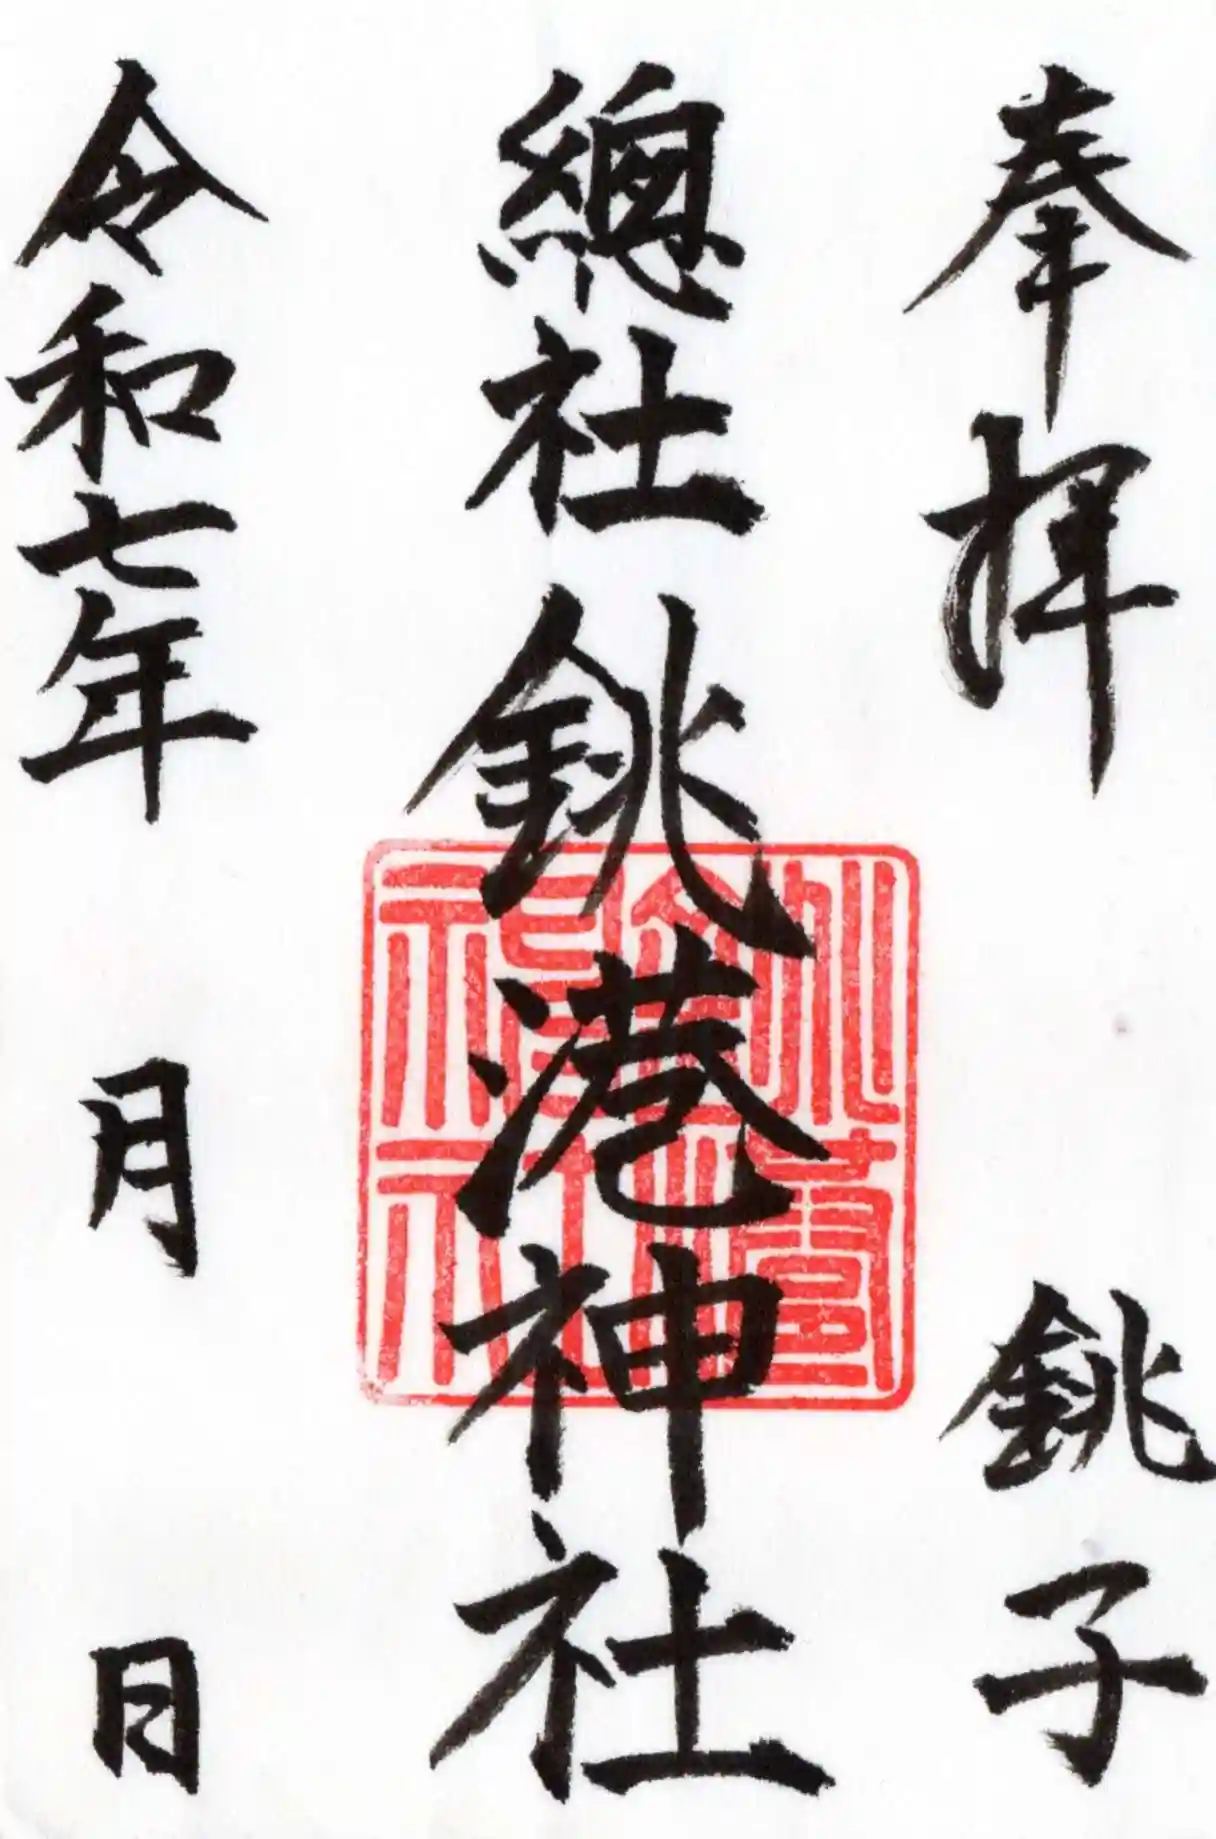 奉拝
銚子
總社
銚港神社
令和七年
月
日